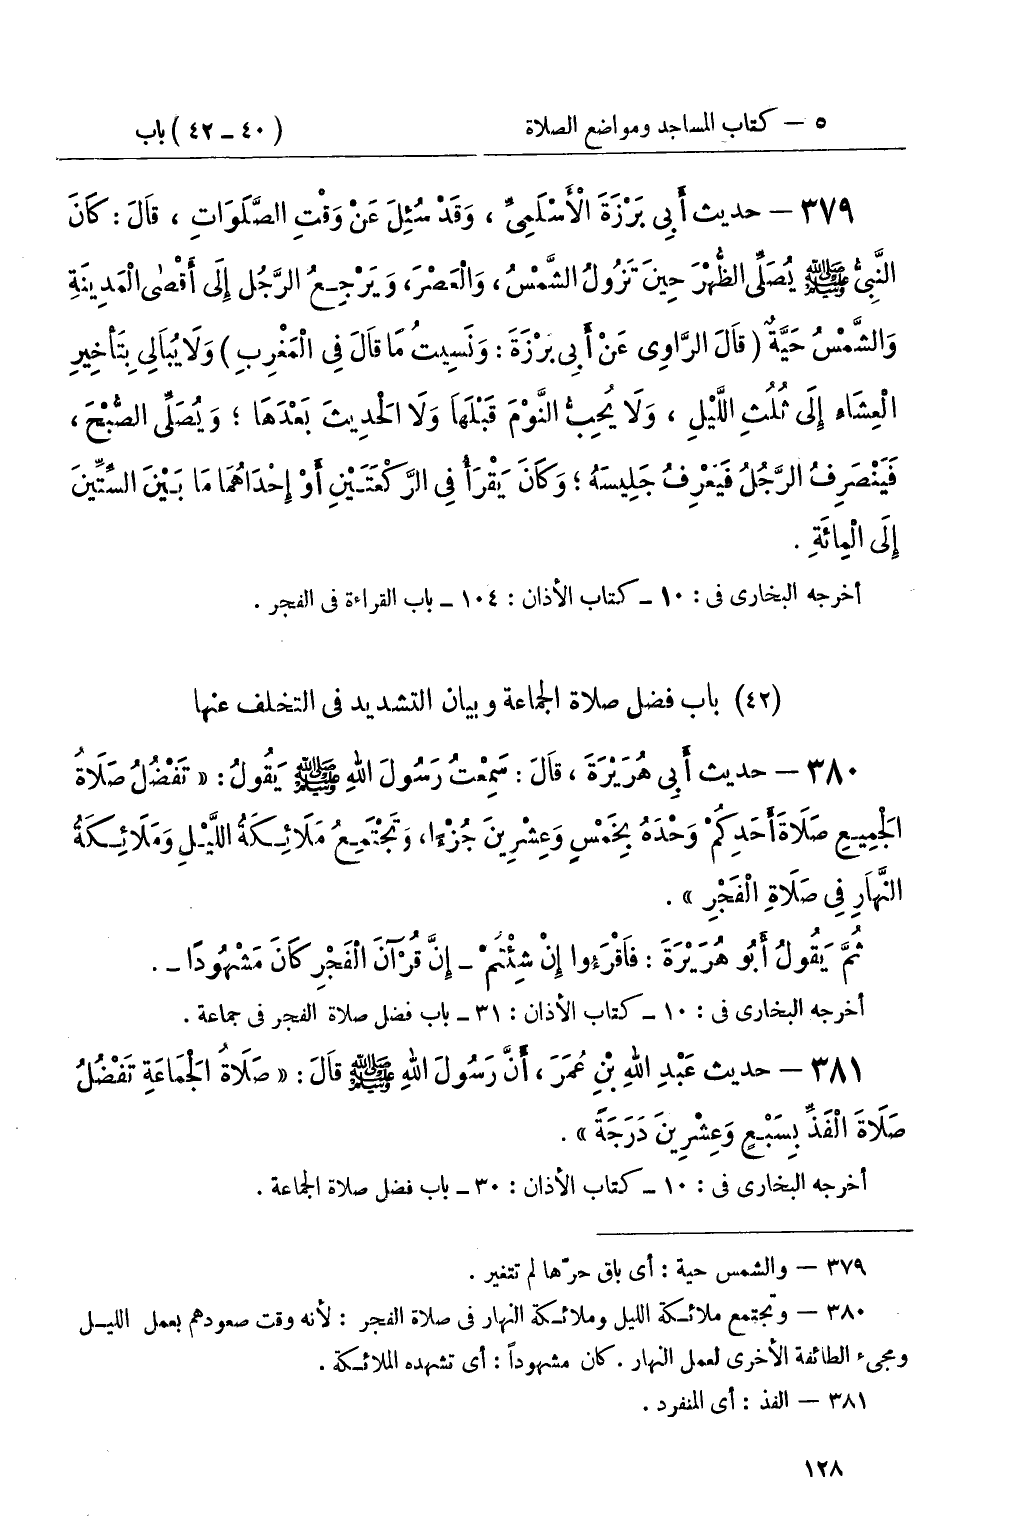 ٥ – كتاب المساجد ومواضع الصلاة (٤٠ – ٤٢) باب
٣٧٩ – حديث أَبِى بَرْزَةَ الْأَسْلَمِىِّ ، وَقَدْ سُئِلَ عَنْ وَقْتِ الصَّلَوَاتِ ، قَالَ : كَانَ
النَّبِىُّ ﷺ يُصَلِّى الظُّهْرَ حِينَ تَزُولُ الشَّمْسُ ، وَالْعَصْرَ ، وَيَرْجِعُ الرَّجُلُ إِلَى أَقْصٰى الْمَدِينَةِ
وَالشَّمْسُ حَيَّةٌ ( قَالَ الرَّاوِى عَنْ أَبِى بَرْزَةَ : وَنَسِيتُ مَا قَالَ فِى الْمَغْرِبِ ) وَلَا يُبَالِى بِتَأْخِيرِ
الْعِشَاءِ إِلَى ثُلُثِ اللَّيْلِ ، وَلَا يُحِبُّ النَّوْمَ قَبْلَهَا وَلَا الْحَدِيثَ بَعْدَهَا ؛ وَيُصَلِّى الصُّبْحَ ،
فَيَنْصَرِفُ الرَّجُلُ فَيَعْرِفُ جَلِيسَهُ ؛ وَكَانَ يَقْرَأُ فِى الرَّكْعَتَيْنِ أَوْ إِحْدَاهُمَا مَا بَيْنَ السِّتِّينَ
إِلَى الْمِائَةِ .
أخرجه البخارى فى : ١٠ – كتاب الأذان : ١٠٤ – باب القراءة فى الفجر .
(٤٢) باب فضل صلاة الجماعة وبيان التشديد فى التخلف عنها
٣٨٠ – حديث أَبِى هُرَيْرَةَ ، قَالَ : سَمِعْتُ رَسُولَ اللهِ ﷺ يَقُولُ : « تَفْضُلُ صَلَاةُ
الْجَمِيعِ صَلَاةَ أَحَدِكُمْ وَحْدَهُ بِخَمْسٍ وَعِشْرِينَ جُزْءًا ، وَتَجْتَمِعُ مَلَائِكَةُ اللَّيْلِ وَمَلَائِكَةُ
النَّهَارِ فِى صَلَاةِ الْفَجْرِ » .
ثُمَّ يَقُولُ أَبُو هُرَيْرَةَ : فَاقْرَءُوا إِنْ شِئْتُمْ – إِنَّ قُرْآنَ الْفَجْرِ كَانَ مَشْهُودًا – .
أخرجه البخارى فى : ١٠ – كتاب الأذان : ٣١ – باب فضل صلاة الفجر فى جماعة .
٣٨١ – حديث عَبْدِ اللهِ بْنِ عُمَرَ ، أَنَّ رَسُولَ اللهِ ﷺ قَالَ : « صَلَاةُ الْجَمَاعَةِ تَفْضُلُ
صَلَاةَ الْفَذِّ بِسَبْعٍ وَعِشْرِينَ دَرَجَةً » .
أخرجه البخارى فى : ١٠ – كتاب الأذان : ٣٠ – باب فضل صلاة الجماعة .
٣٧٩ – والشمس حية : أى باق حرّها لم تتغير .
٣٨٠ – وتجتمع ملائكة الليل وملائكة النهار فى صلاة الفجر : لأنه وقت صعودهم بعمل الليل
ومجىء الطائفة الأخرى لعمل النهار . كان مشهوداً : أى تشهده الملائكة .
٣٨١ – الفذ : أى المنفرد .
١٢٨